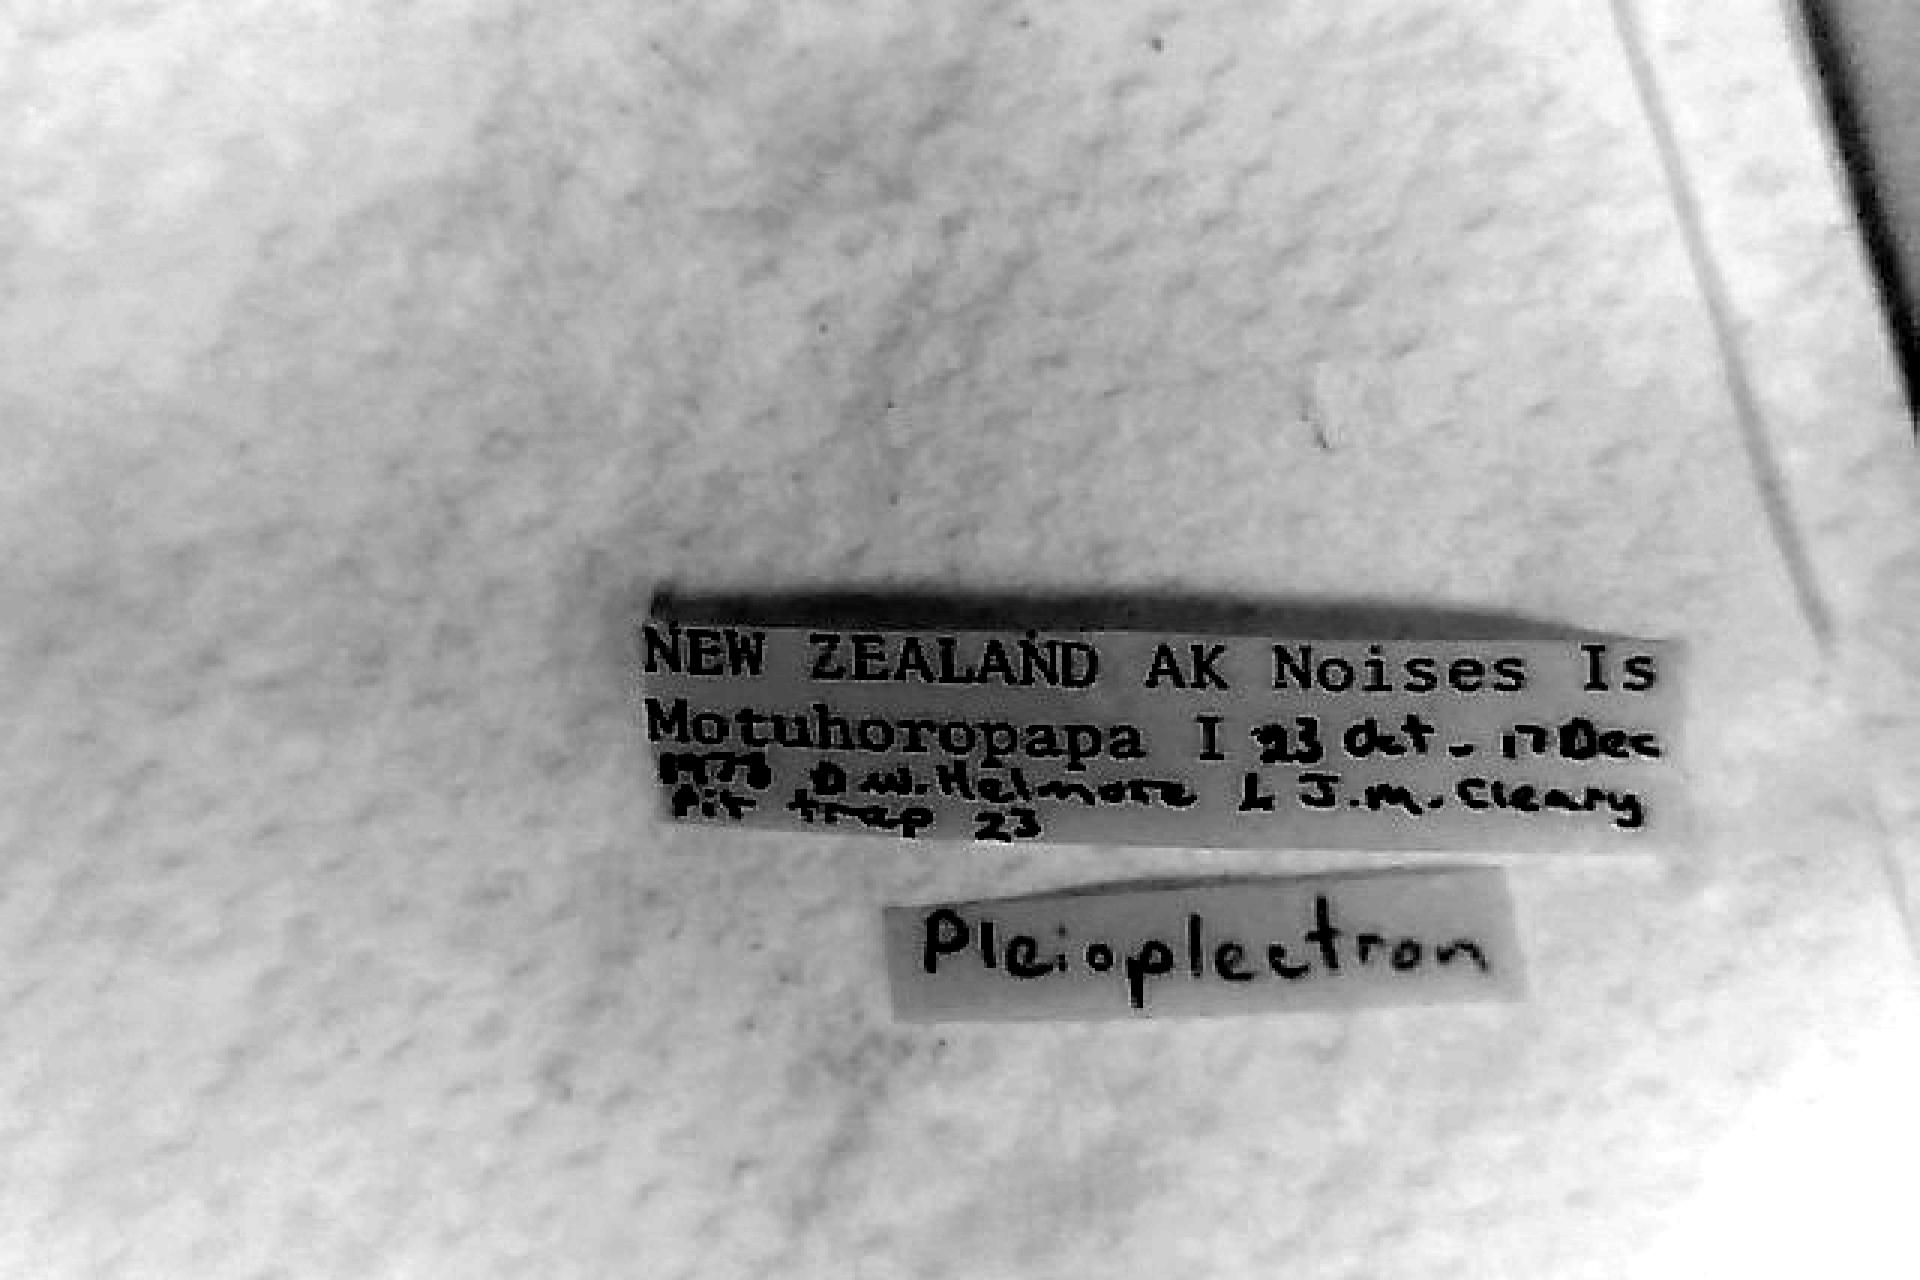 NEW ZEALAND AK Noises Is
Motuhoropapa I 23 Oct - 17 Dec
1978 D.W. Helmore & J.M. Cleary
Pit trap 23
Pleioplectron